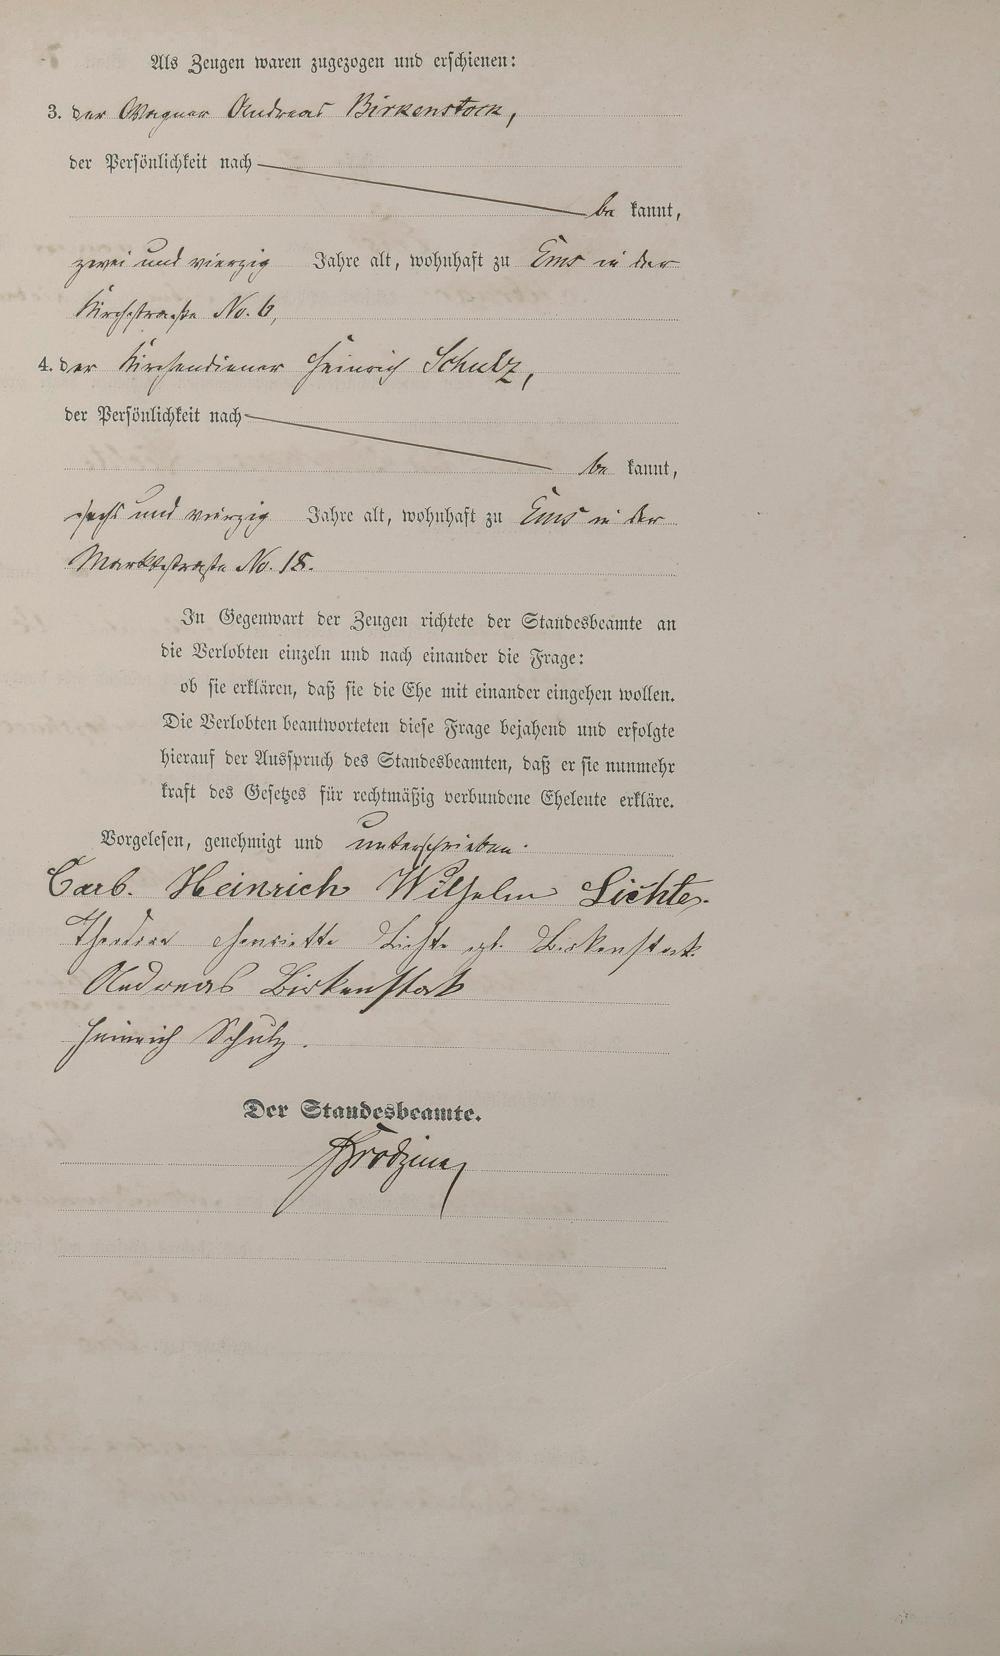 Als Zeugen waren zugezogen und erschienen:
3. der Wagner Andreas Birkenstock,
der Persönlichkeit nach
be kannt,
zwei und vierzig Jahre alt, wohnhaft zu Ems in der
Kirchstraße No. 6,
4. der Kirchendiener Heinrich Schulz,
der Persönlichkeit nach
be kannt,
sechs und vierzig Jahre alt, wohnhaft zu Ems in der
Marktstraße No. 18.
In Gegenwart der Zeugen richtete der Standesbeamte an
die Verlobten einzeln und nach einander die Frage:
ob sie erklären, daß sie die Ehe mit einander eingehen wollen.
Die Verlobten beantworteten diese Frage bejahend und erfolgte
hierauf der Ausspruch des Standesbeamten, daß er sie nunmehr
kraft des Gesetzes für rechtmäßig verbundene Eheleute erkläre.
Vorgelesen, genehmigt und unterschrieben.
Carl. Heinrich Wilhelm Lichte.
Theodora Henriette Lichte gb. Birkenstock.
Andreas Birkenstock
Heinrich Schulz.
Der Standesbeamte.